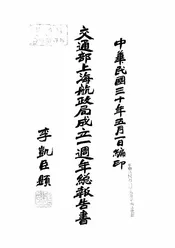 中華民國三十年五月一日編印
交通部上海航政局成立一週年總報告書
李凱臣題